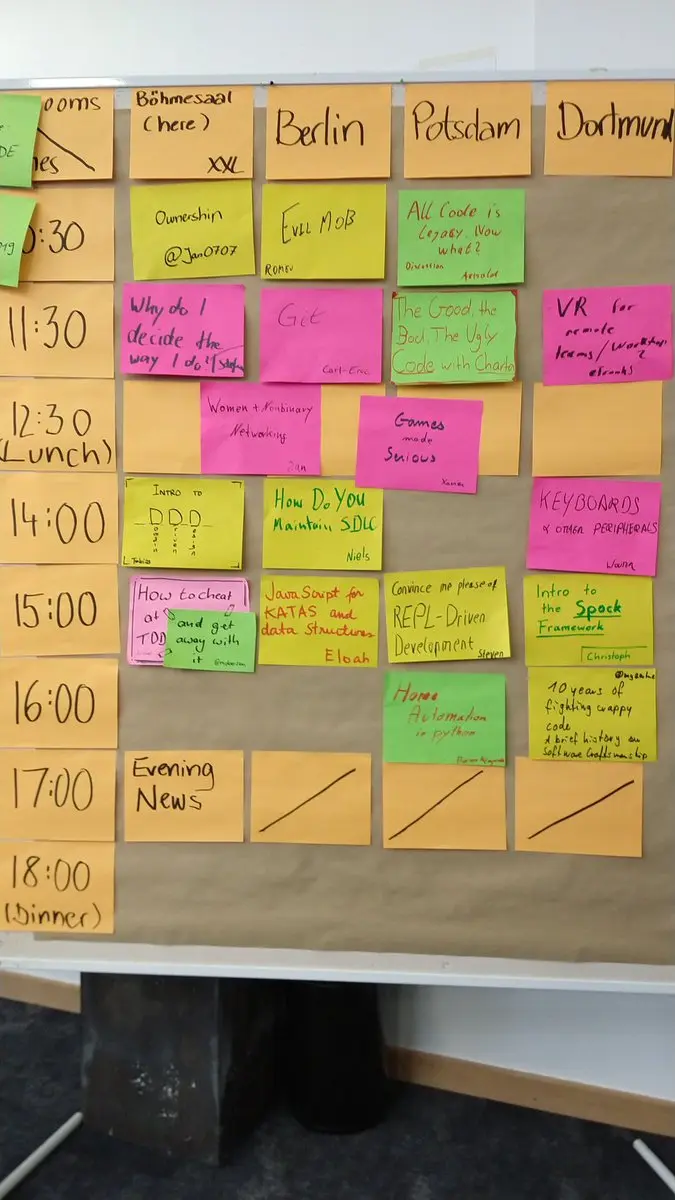 ooms
Böhmesaal
(here)
XXL
Berlin
Potsdam
Dortmund
DE
:30
Ownership
@Jan0707
Evil Mob
Romeu
All Code is
Legacy. Now
what?
Discussion
Arnold
11:30
Why do I
decide the
way I do?!
Git
Carl-Eric
The Good, the
Bad, The Ugly
Code with
VR for
remote
teams/
12:30
(Lunch)
Women + Nonbinary
Networking
Games
made
Serious
14:00
INTRO TO
D D D
omain riven esign
Tobias
How Do You
Maintain SDLC
Niels
KEYBOARDS
& OTHER PERIPHERALS
15:00
How to cheat
at
TDD
and get
away with
it
JavaScript for
KATAS and
data Structures
Eloah
Convince me please of
REPL-Driven
Development
Steven
Intro to
the Spock
Framework
Christoph
16:00
Home
Automation
in python
10 years of
fighting crappy
code
A brief history on
Software Craftsmanship
17:00
Evening
News
18:00
(Dinner)